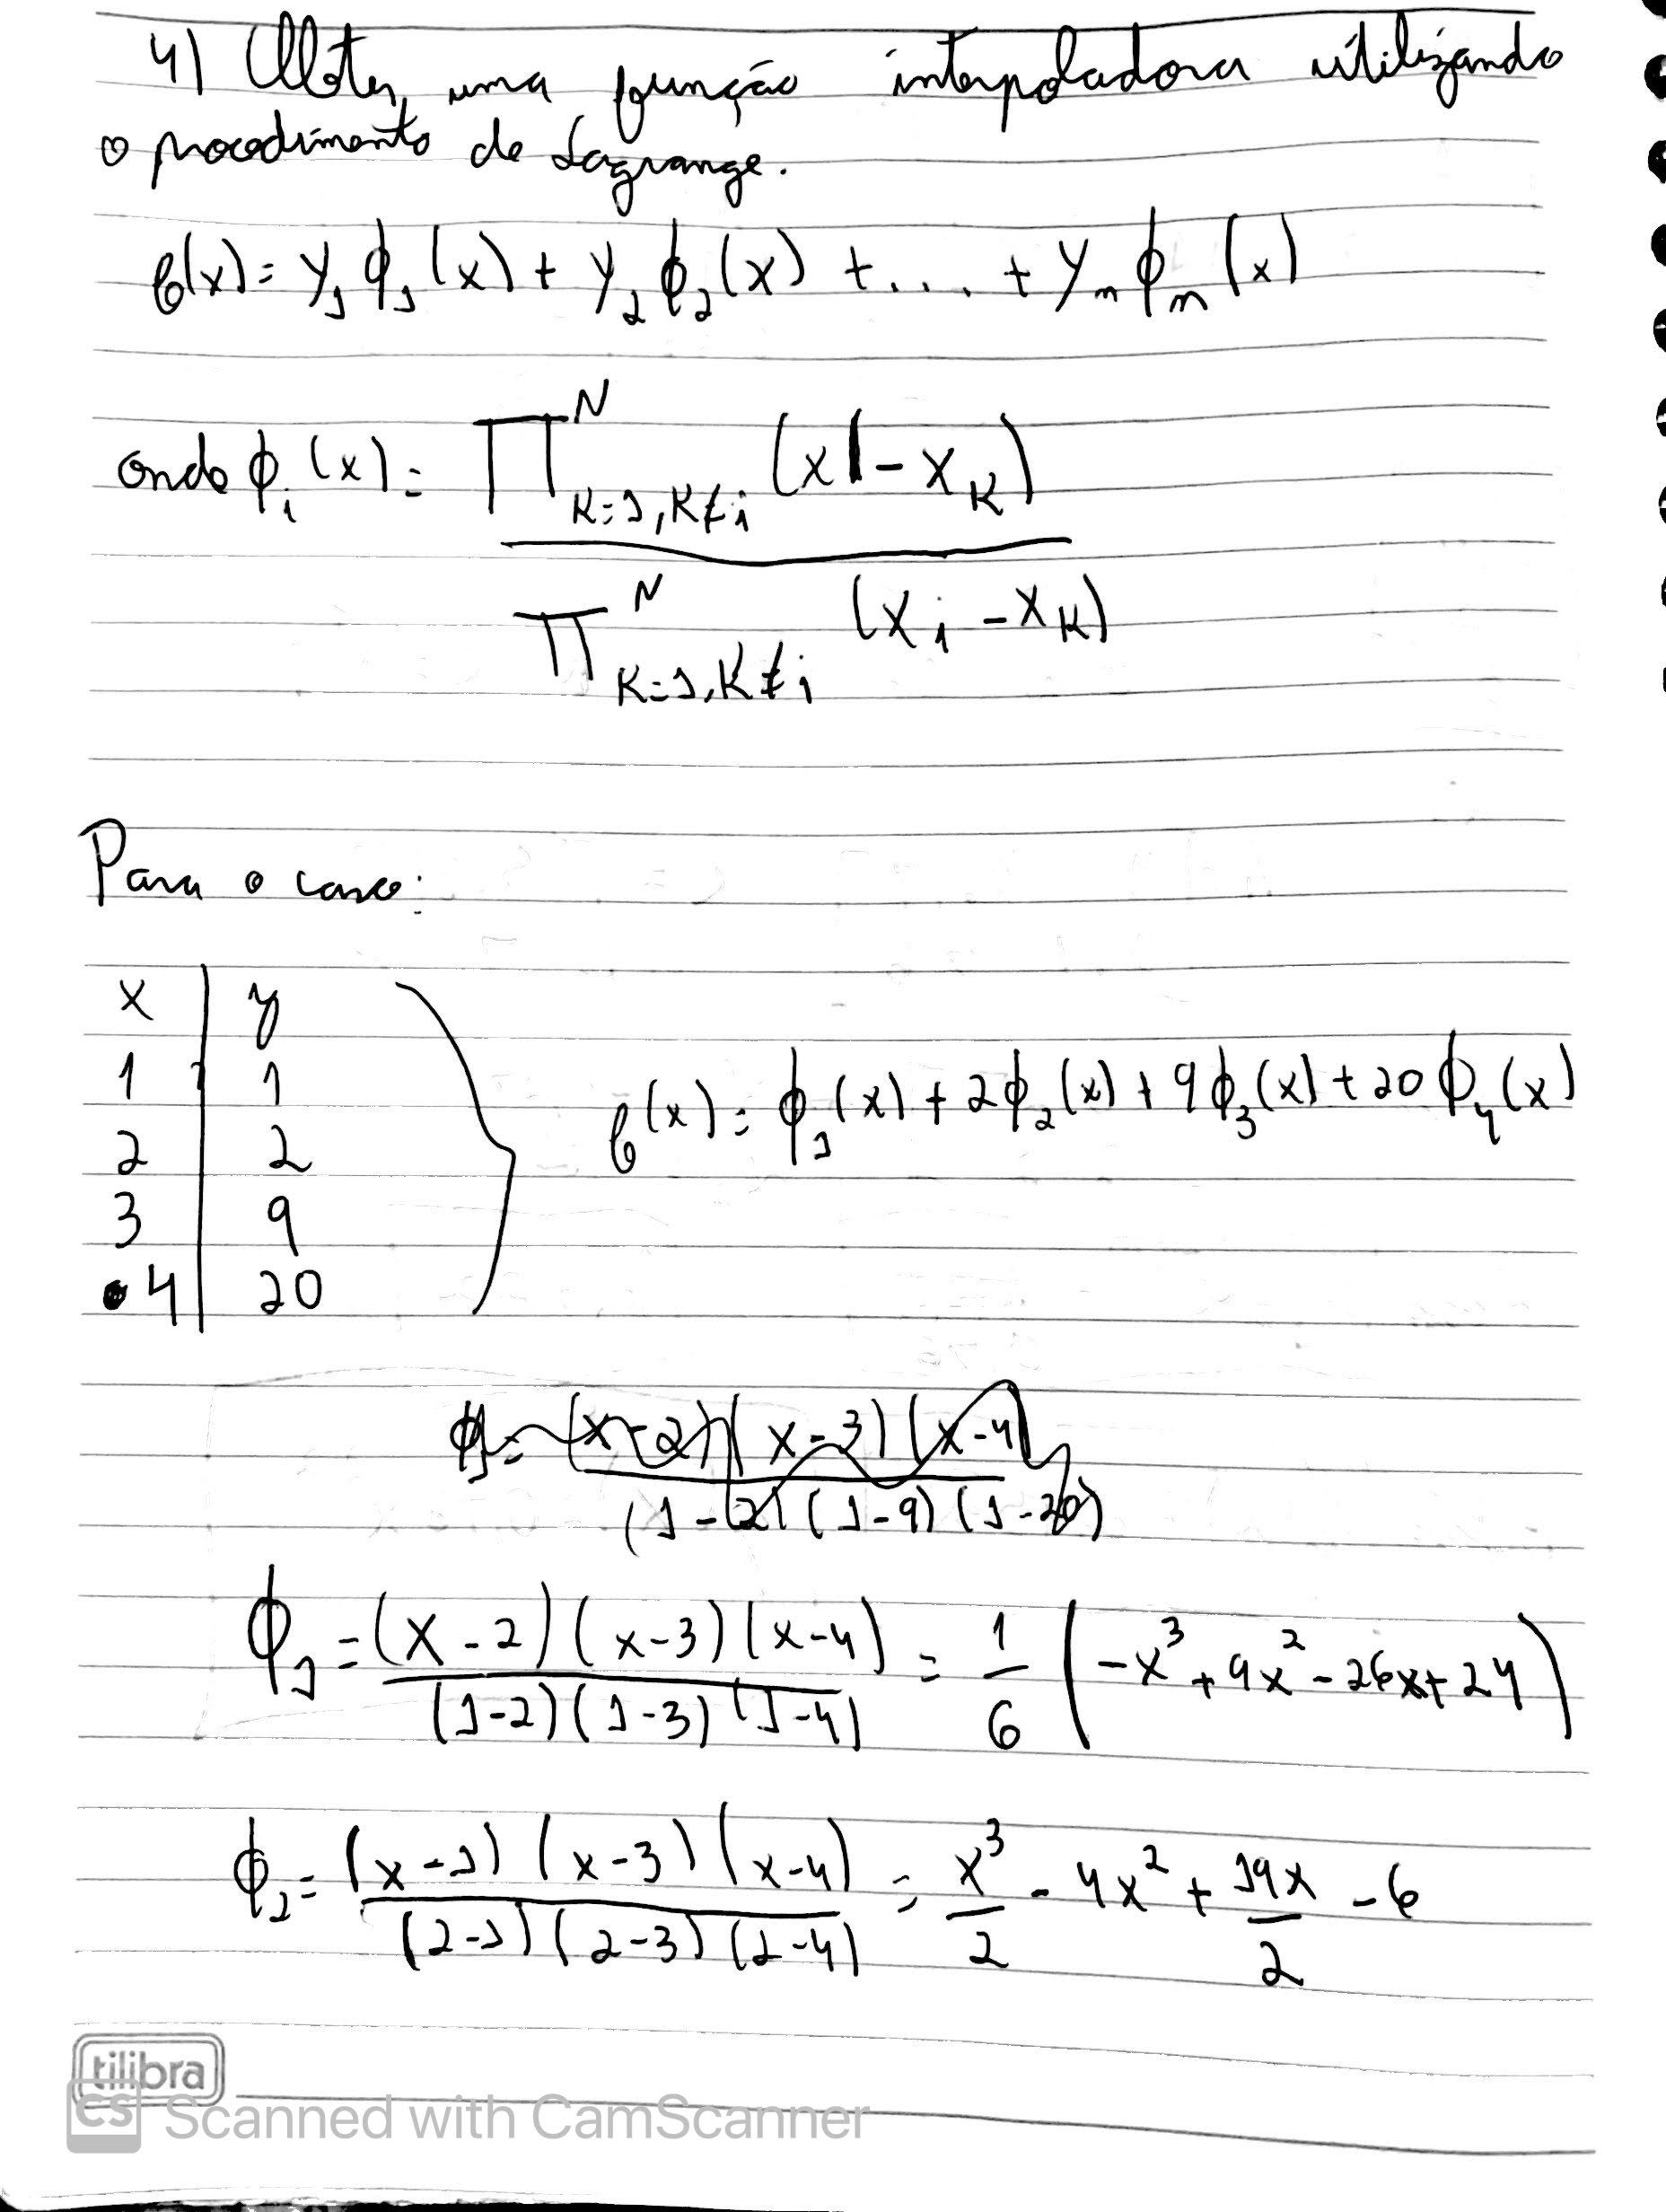 4) Obter, uma função interpoladora utilizando
o procedimento de Lagrange.
f(x) = y₁ϕ₁(x) + y₂ϕ₂(x) + .... + yₙϕₙ(x)
onde ϕᵢ(x) = ∏ᴺ K=1, K≠i (x - x_K)
∏ᴺ K=1, K≠i (xᵢ - x_K)
Para o caso:
x | y
1 | 1
2 | 2
3 | 9
4 | 20
f(x) = ϕ₁(x) + 2ϕ₂(x) + 9ϕ₃(x) + 20ϕ₄(x)
ϕ₁ = (x-2)(x-3)(x-4)
(1-2)(1-9)(1-20)
ϕ₁ = (x-2)(x-3)(x-4) = 1 (-x³ + 9x² - 26x + 24)
(1-2)(1-3)(1-4) 6
ϕ₂ = (x-1)(x-3)(x-4) = x³ - 4x² + 19x - 6
(2-1)(2-3)(2-4) 2 2
tilibra
CS Scanned with CamScanner